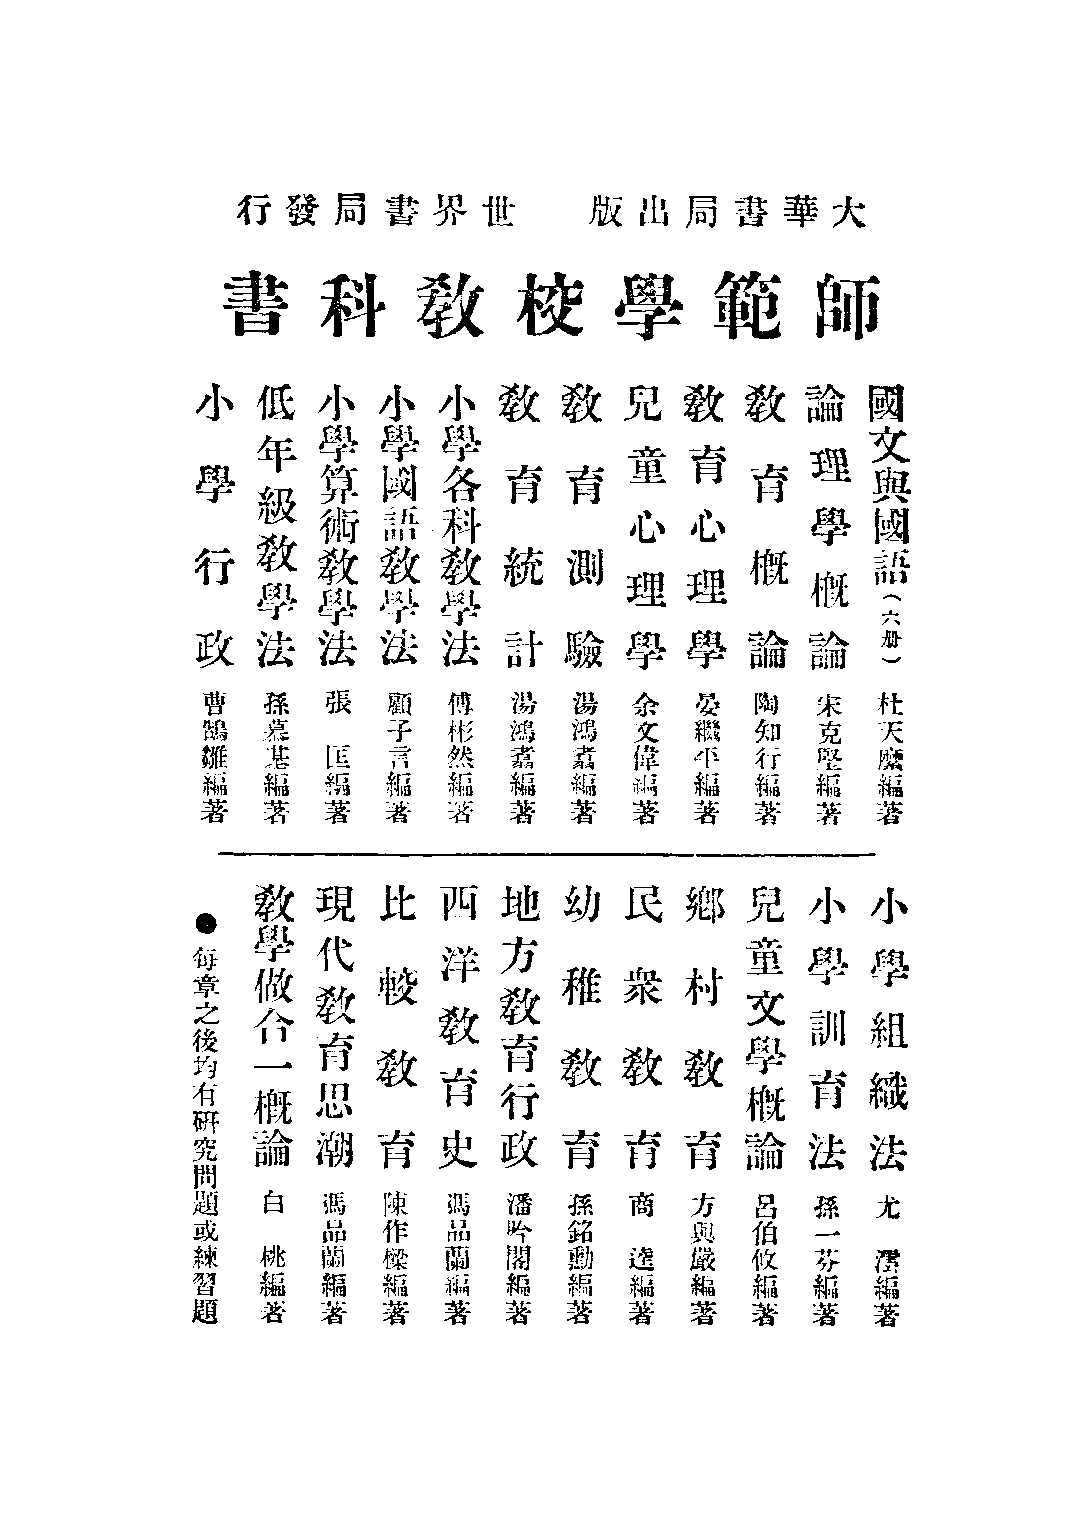 大華書局出版　世界書局發行
師範學校教科書
國文與國語（六册）　杜天縻編著
論理學概論　宋克堅編著
教育概論　陶知行編著
教育心理學　晏繼平編著
兒童心理學　余文偉編著
教育測驗　湯鴻翥編著
教育統計　湯鴻翥編著
小學各科教學法　傅彬然編著
小學國語教學法　顧子言編著
小學算術教學法　張　匡編著
低年級教學法　孫慕基編著
小學行政　曹鵠雛編著
小學組織法　尤　編著
小學訓育法　孫一芬編著
兒童文學概論　呂伯攸編著
鄉村教育　方與嚴編著
民衆教育　商　逵編著
幼稚教育　孫銘勳編著
地方教育行政　潘吟閣編著
西洋教育史　馮品蘭編著
比較教育　陳作樑編著
現代教育思潮　馮品蘭編著
教學做合一概論　白　桃編著
●每章之後均有研究問題或練習題